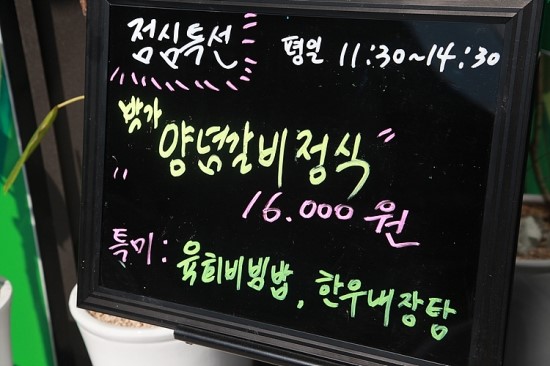 점심특선 평일 11:30~14:30
방가
양념갈비정식
16.000원
특미: 육회비빔밥, 한우내장탕